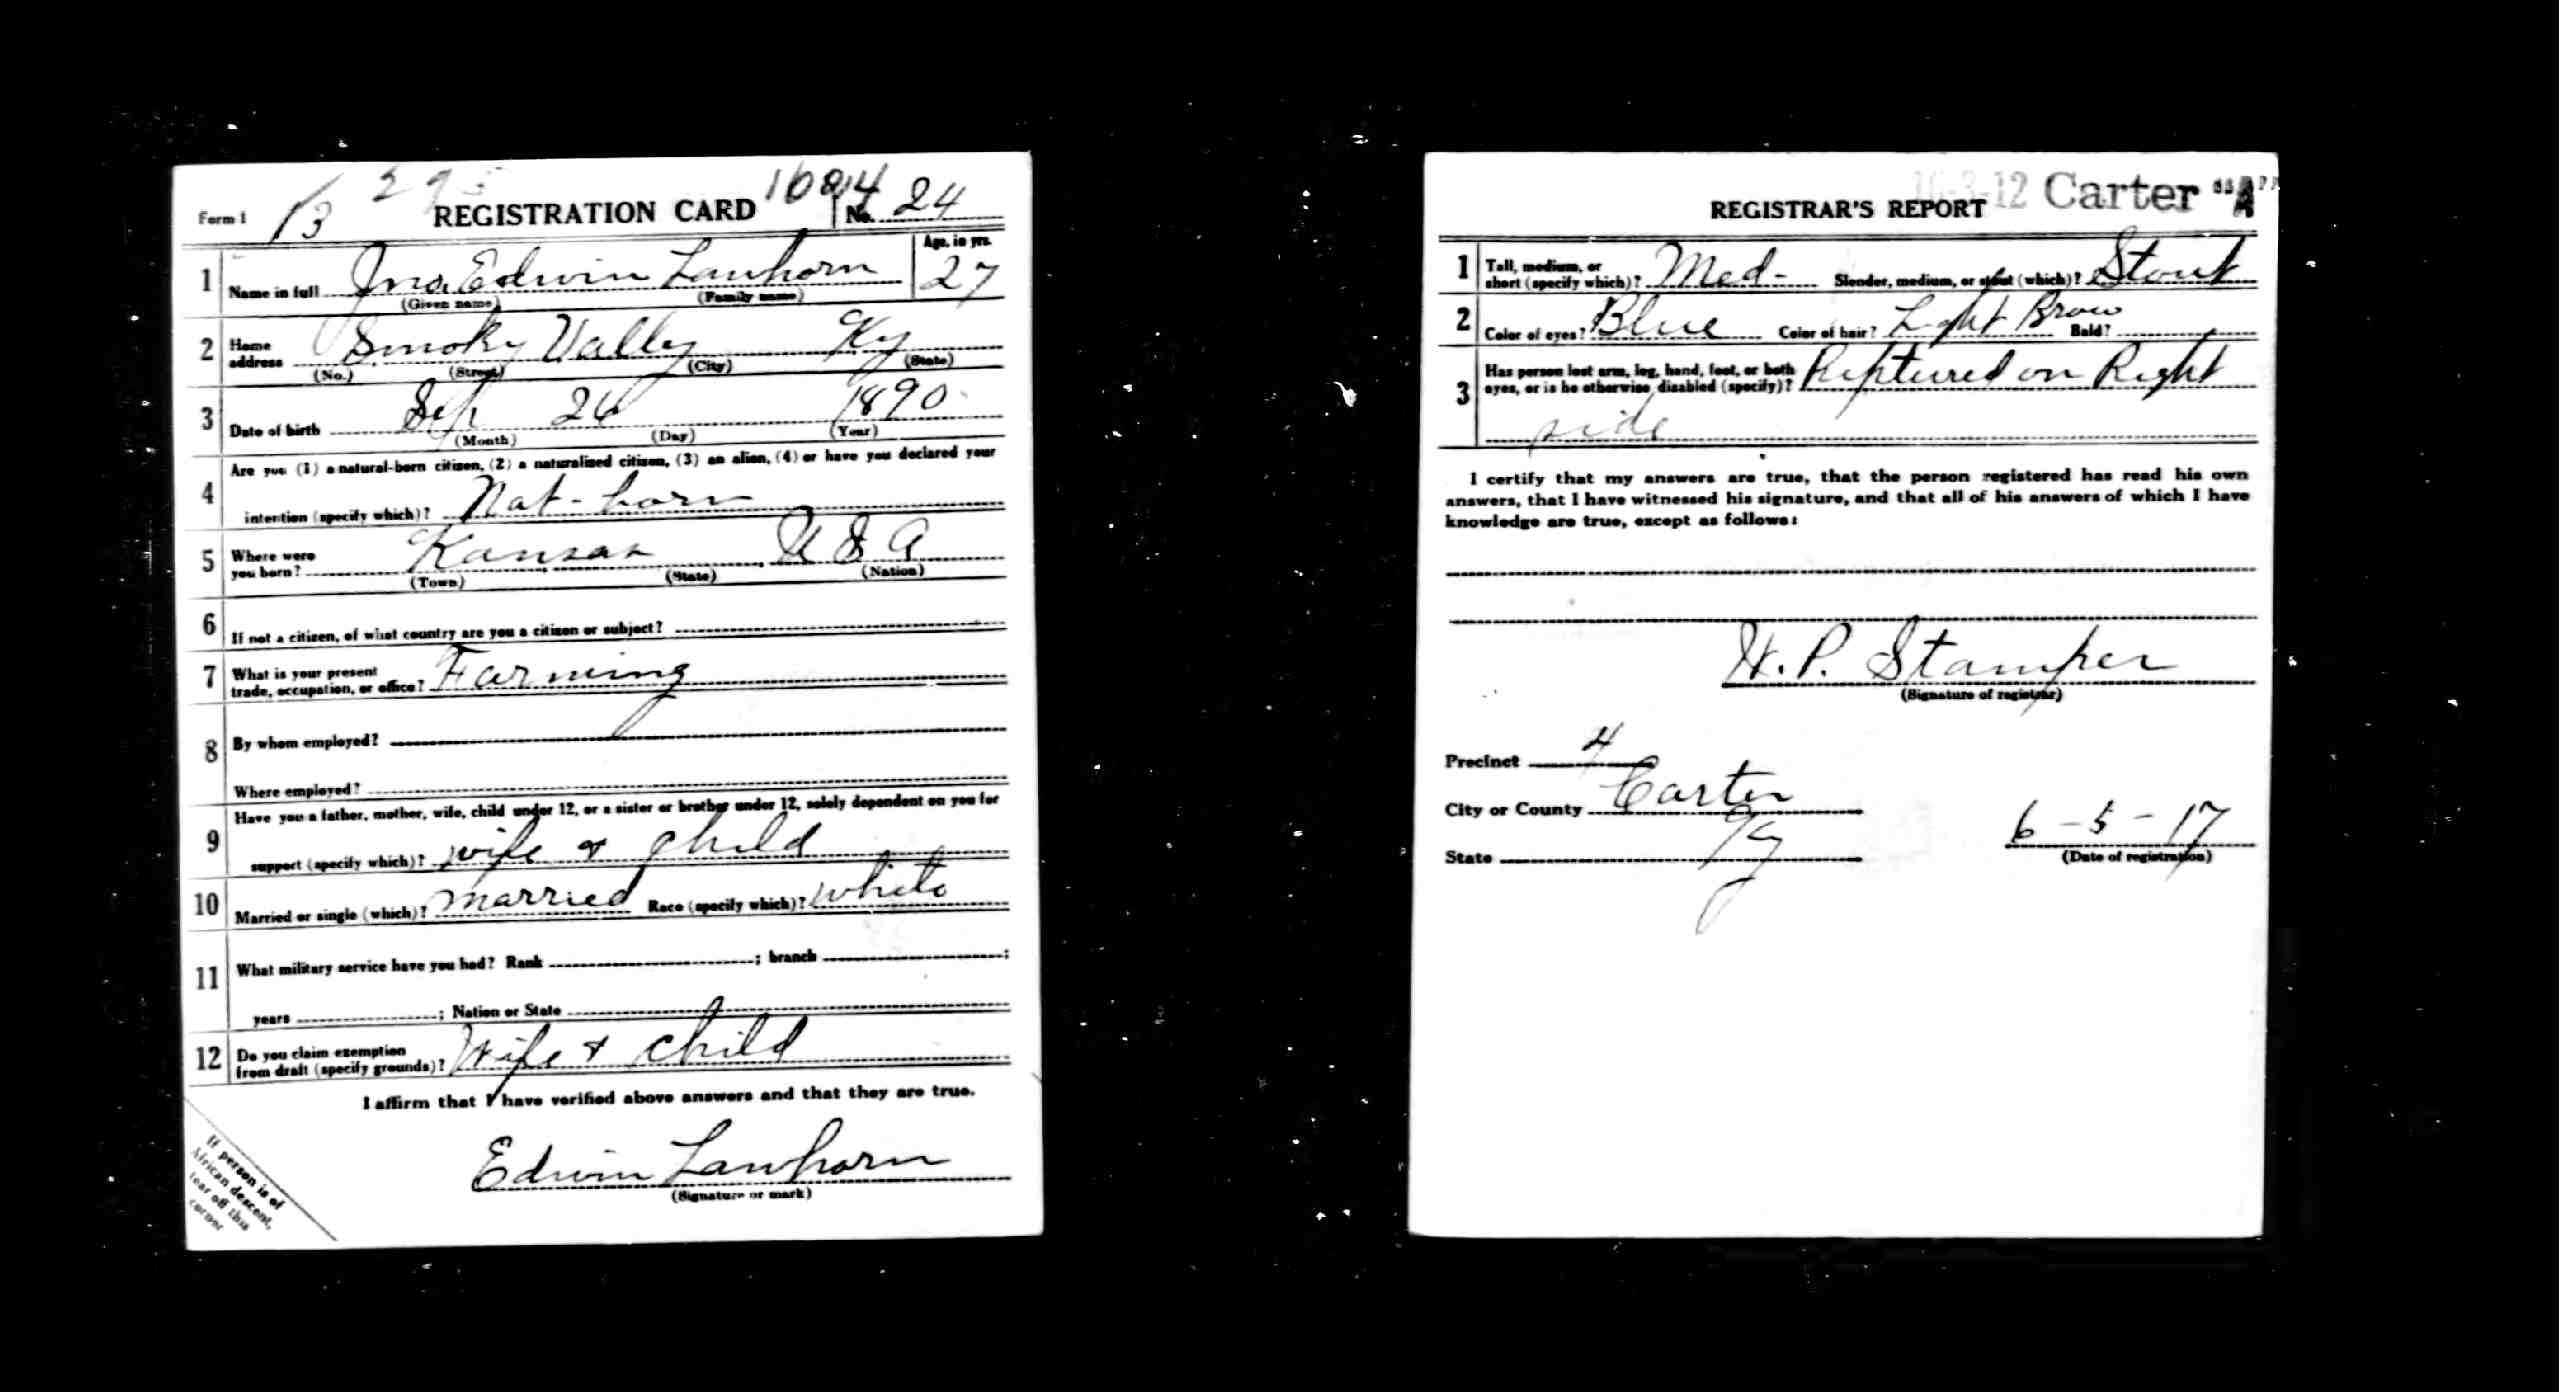 Form 1
13
REGISTRATION CARD
No. 24
1 Name in full Jno. Edwin Lawhorn
(Given name) (Family name)
Age, in yrs.
27
2 Home address Smoky Valley Ky
(No.) (Street) (City) (State)
3 Date of birth Sep 26 1890
(Month) (Day) (Year)
4 Are you (1) a natural-born citizen, (2) a naturalized citizen, (3) an alien, (4) or have you declared your
intention (specify which)? Nat-born
5 Where were you born? Kansas U S A
(Town) (State) (Nation)
6 If not a citizen, of what country are you a citizen or subject?
7 What is your present
trade, occupation, or office? Farming
8 By whom employed?
Where employed?
9 Have you a father, mother, wife, child under 12, or a sister or brother under 12, solely dependent on you for
support (specify which)? wife & child
10 Married or single (which)? married Race (specify which)? white
11 What military service have you had? Rank ; branch ;
years ; Nation or State
12 Do you claim exemption
from draft (specify grounds)? Wife & child
I affirm that I have verified above answers and that they are true.
Edwin Lawhorn
(Signature or mark)
If person is of
African descent,
tear off this
corner
16-3-12 Carter "A"
REGISTRAR'S REPORT
1 Tall, medium, or
short (specify which)? Med- Slender, medium, or stout (which)? Stout
2 Color of eyes? Blue Color of hair? Light Brow Bald?
3 Has person lost arm, leg, hand, foot, or both
eyes, or is he otherwise disabled (specify)? Ruptured on Right
side
I certify that my answers are true, that the person registered has read his own
answers, that I have witnessed his signature, and that all of his answers of which I have
knowledge are true, except as follows:
H. P. Stamper
(Signature of registrar)
Precinct 4
City or County Carter
State Ky
6-5-17
(Date of registration)